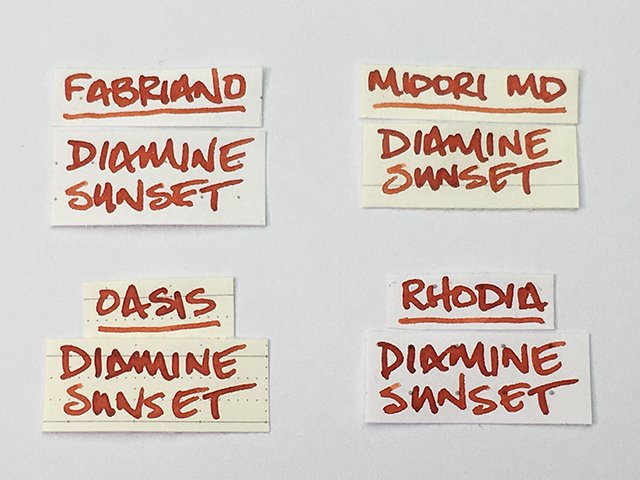 FABRIANO
DIAMINE
SUNSET
MIDORI MD
DIAMINE
SUNSET
OASIS
DIAMINE
SUNSET
RHODIA
DIAMINE
SUNSET